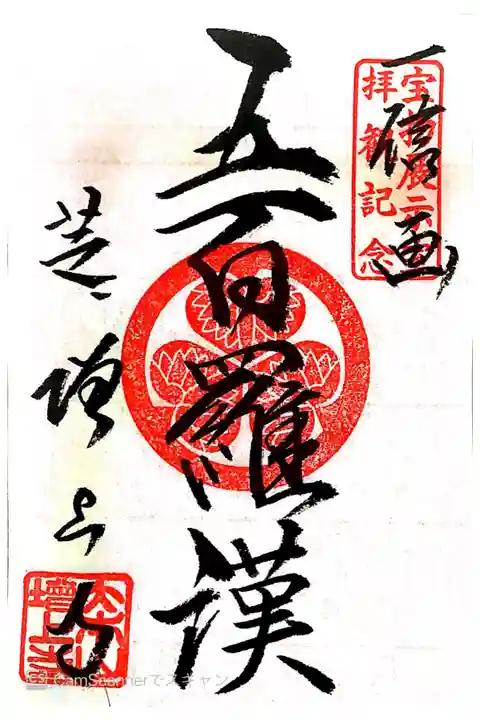 一信画
拝観記念
五百羅漢
芝 増上寺
CamScannerでスキャン